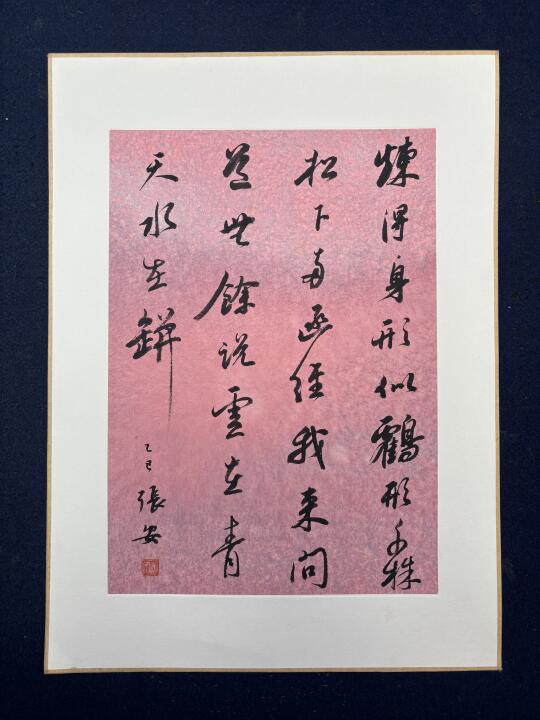 煉得身形似鶴形千株
松下兩函經我來問
道無餘說雲在青
天水在缾
乙巳張安